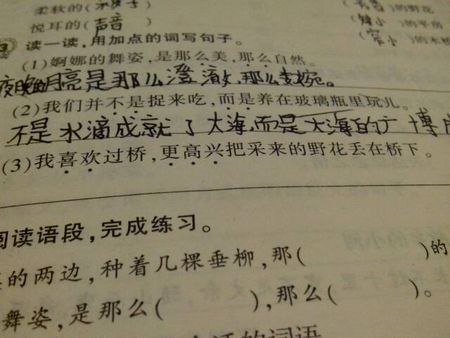 柔软的(
)的野花
悦耳的(声音)
读一读,用加点的词写句子。
(1)婀娜的舞姿,是那么美,那么自然。
夜晚明亮是那么澄澈,那么
(2)我们并不是捉来吃,而是养在玻璃瓶里玩儿。
不是水滴成就了大海,而是大海的广博
(3)我喜欢过桥,更高兴把采来的野花丢在桥下。
阅读语段,完成练习。
的两边,种着几棵垂柳,那( )的
舞姿,是那么( ),那么( )。
的词语